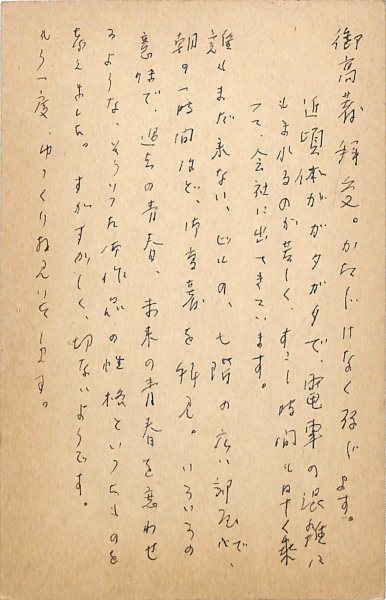 御高著拝受。かたじけなく存じます。
近頃体がガタガタで、電車の混雑に
もまれるのが苦しく、すこし時間も早く乗
って、会社に出てきています。
誰もまだ来ない、ビルの、七階の広い部屋で、
朝の一時間ほど、御高著を拝見。いろいろの
意味で、過去の青春、未来の青春を思わせ
るような、そういった御作品の性格というものを
考えました。すがすがしく、切ないようです。
もう一度、ゆっくり拝見いたします。